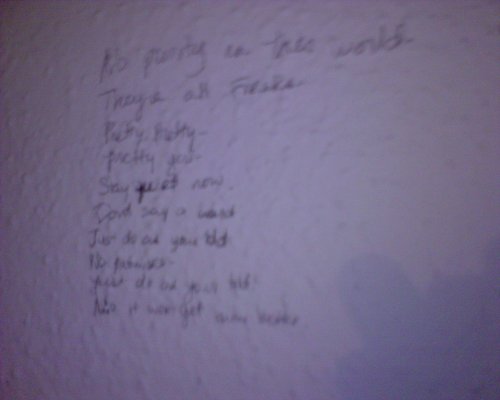 No purity in this world
They're all Freaks
Pretty Pretty
Pretty you
Say quiet now.
Dont say a word
Just do as your told
No
Just do as your told!
it won't get